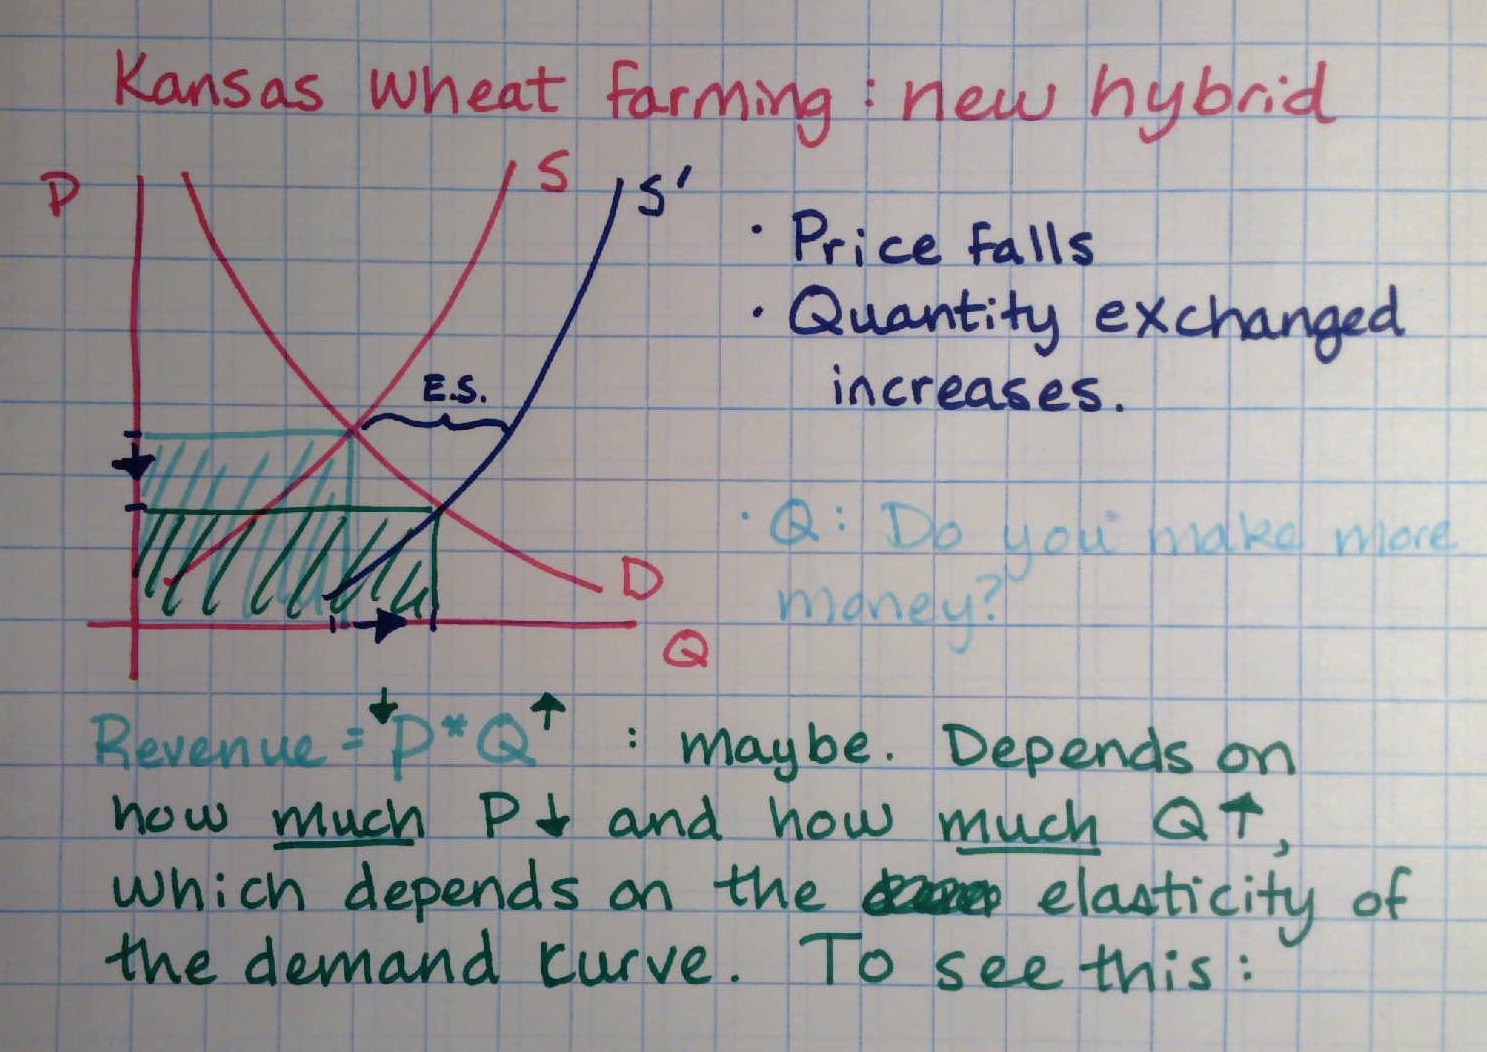 Kansas wheat farming: new hybrid
P
S
S'
· Price falls
· Quantity exchanged
increases.
E.S.
· Q: Do you make more
money?
D
Q
Revenue = ↓P*Q↑ : maybe. Depends on
how much P↓ and how much Q↑,
which depends on the elasticity of
the demand curve. To see this: